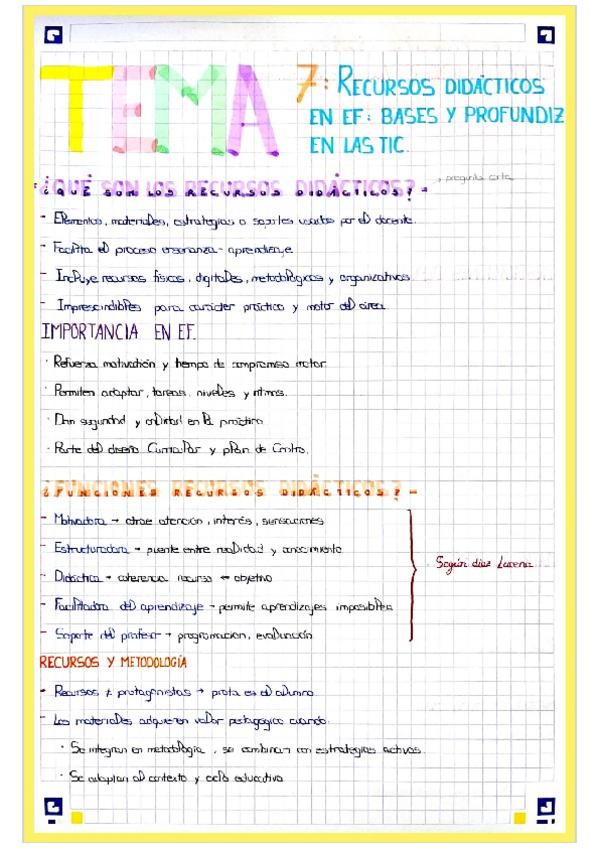 TEMA 7: RECURSOS DIDÁCTICOS
EN EF: BASES Y PROFUNDIZ
EN LAS TIC.
¿QUÉ SON LOS RECURSOS DIDÁCTICOS? → pregunta corta
- Elementos, materiales, estrategias o soportes usados por el docente.
- Facilita el proceso enseñanza-aprendizaje
- Incluye recursos físicos, digitales, metodológicos y organizativos
- Imprescindibles para carácter práctico y motor del área.
IMPORTANCIA EN EF.
· Refuerza motivación y tiempo de compromiso motor.
· Permiten adaptar, tareas, niveles y ritmos.
· Dan seguridad y calidad en la práctica
· Parte del diseño Curricular y plan de Centro.
¿FUNCIONES RECURSOS DIDÁCTICOS? -
- Motivadora → atrae atención, interés, sensaciones
- Estructuradora → puente entre realidad y conocimiento
- Didáctica → coherencia recurso ↔ objetivo
- Facilitadora del aprendizaje → permite aprendizajes imposibles
- Soporte del profesor → programación, evaluación
Según díaz Lucena
RECURSOS Y METODOLOGÍA
- Recursos ≠ protagonistas → prota es el alumno
- Los materiales adquieren valor pedagógico cuando:
· Se integran en metodología, se combinan con estrategias activas.
· Se adaptan al contexto y ciclo educativo